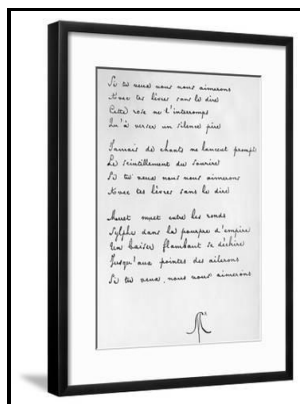 Si tu veux nous nous aimerons
Avec tes lèvres sans le dire
Cette rose ne l'interromps
Qu'à verser un silence pire
Jamais de chants ne lancent prompts
Le scintillement du sourire
Si tu veux nous nous aimerons
Avec tes lèvres sans le dire
Muet muet entre les ronds
Sylphe dans la pourpre d'empire
Un baiser flambant se déchire
Jusqu'aux pointes des ailerons
Si tu veux nous nous aimerons